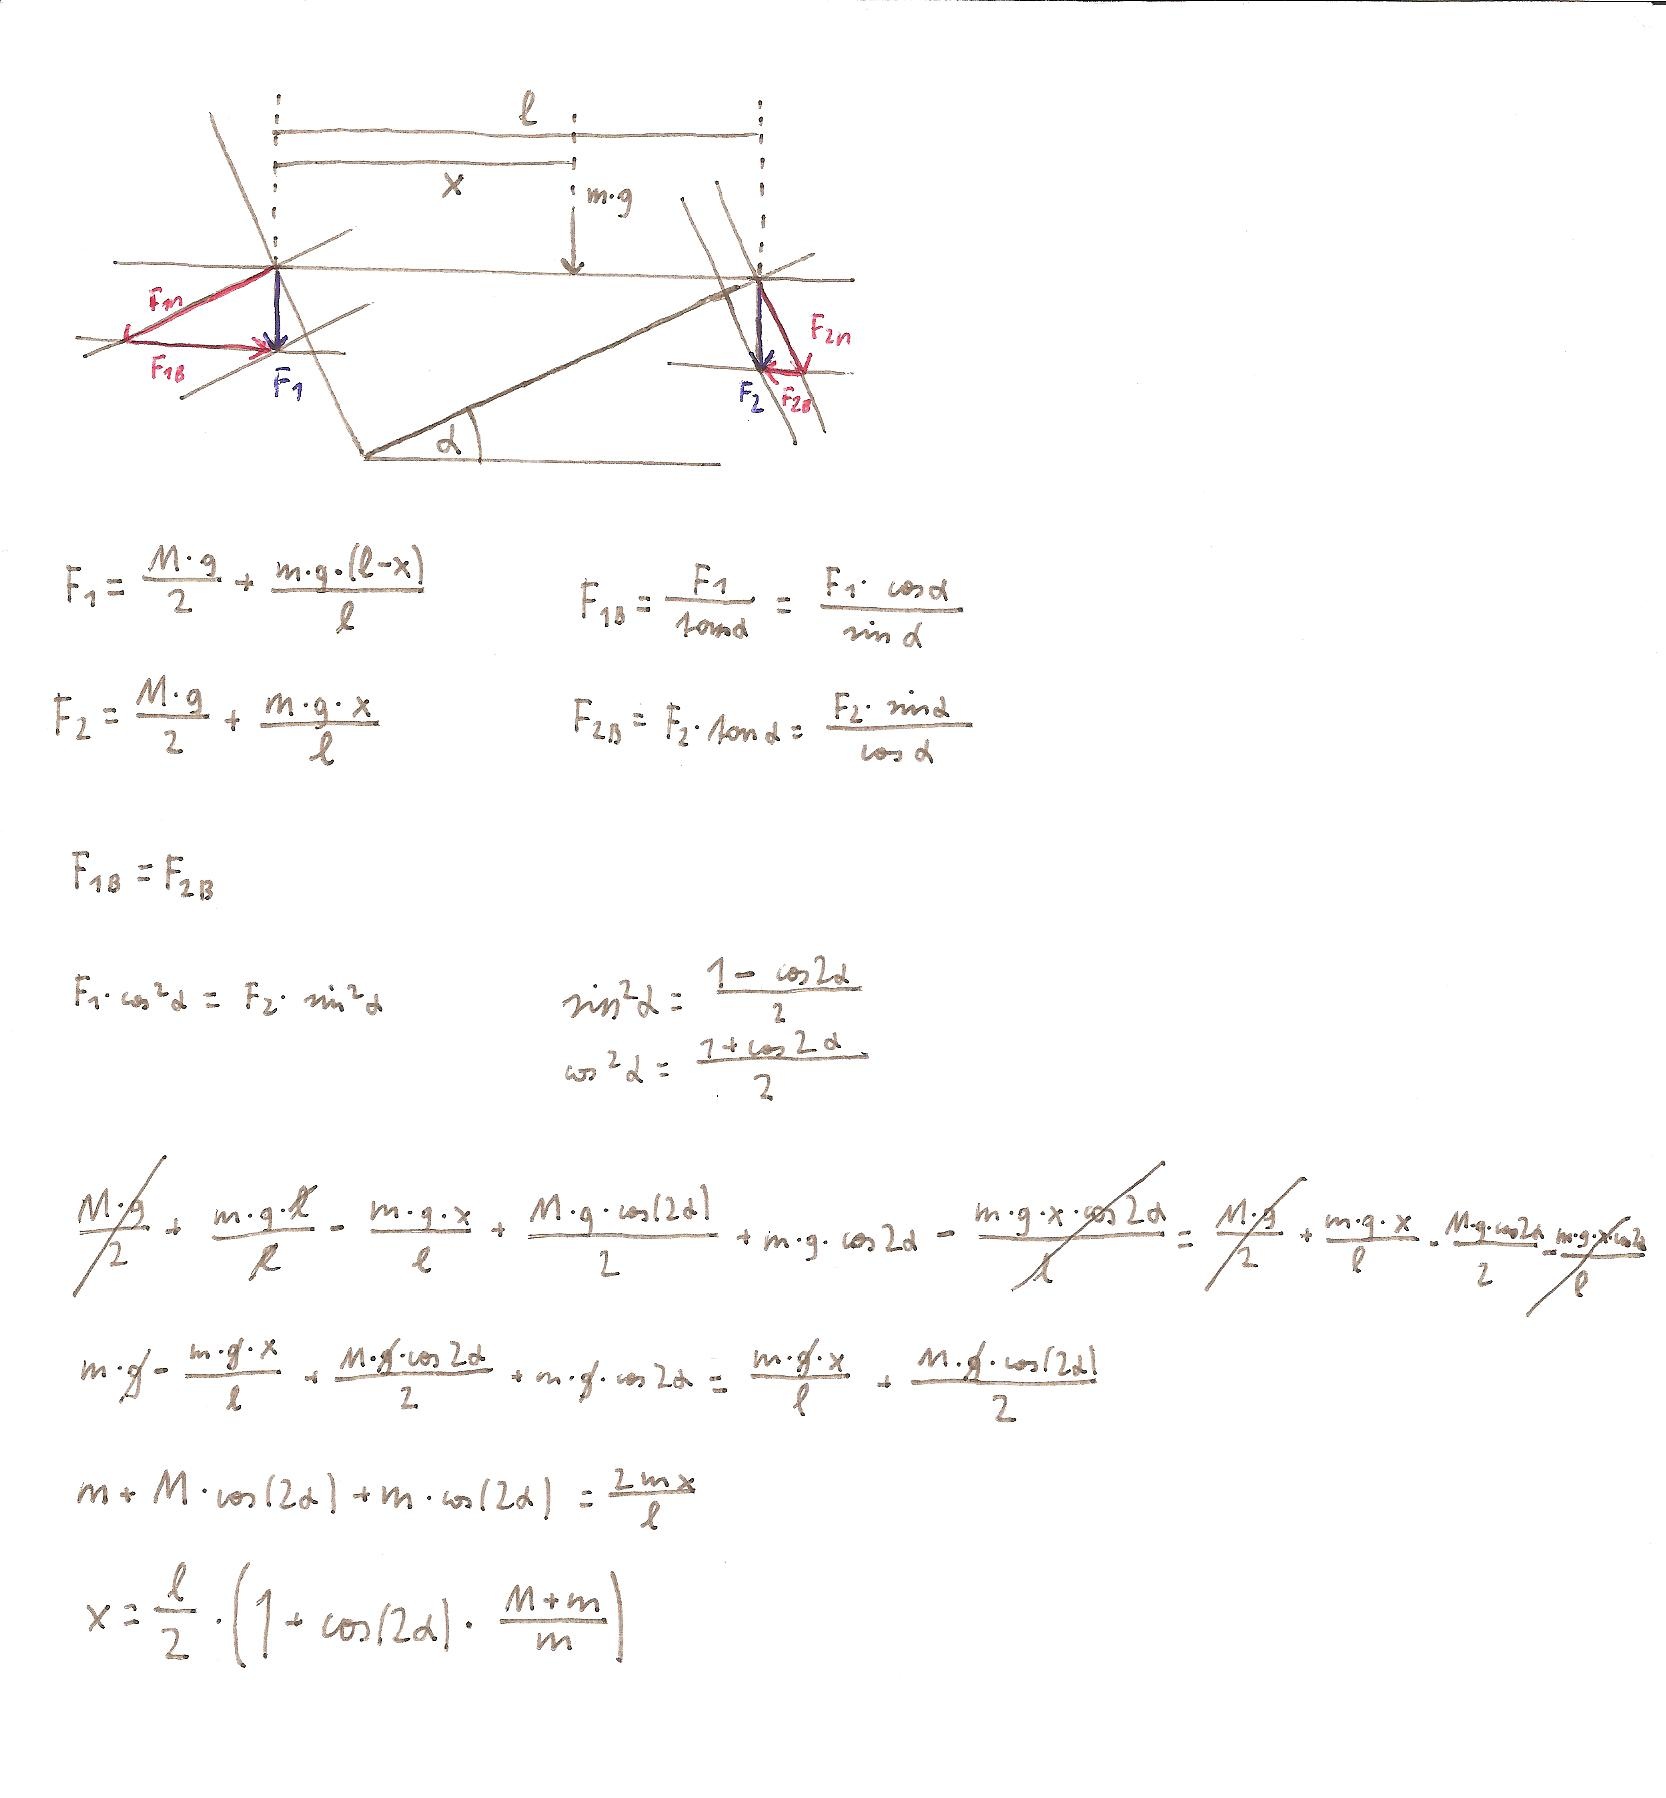 l
x
m·g
F1n
F1B
F1
F2n
F2
F2B
α
F1 = M·g/2 + m·g·(l-x)/l
F1B = F1/tanα = F1·cosα/sinα
F2 = M·g/2 + m·g·x/l
F2B = F2·tanα = F2·sinα/cosα
F1B = F2B
F1·cos²α = F2·sin²α
sin²α = 1-cos2α/2
cos²α = 1+cos2α/2
M·g/2 + m·g·l/l - m·g·x/l + M·g·cos(2α)/2 + m·g·cos2α - m·g·x·cos2α/l = M·g/2 + m·g·x/l - M·g·cos2α/2 - m·g·x·cos2α/l
m·g - m·g·x/l + M·g·cos2α/2 + m·g·cos2α = m·g·x/l + M·g·cos(2α)/2
m + M·cos(2α) + m·cos(2α) = 2mx/l
x = l/2·(1 + cos(2α)·M+m/m)